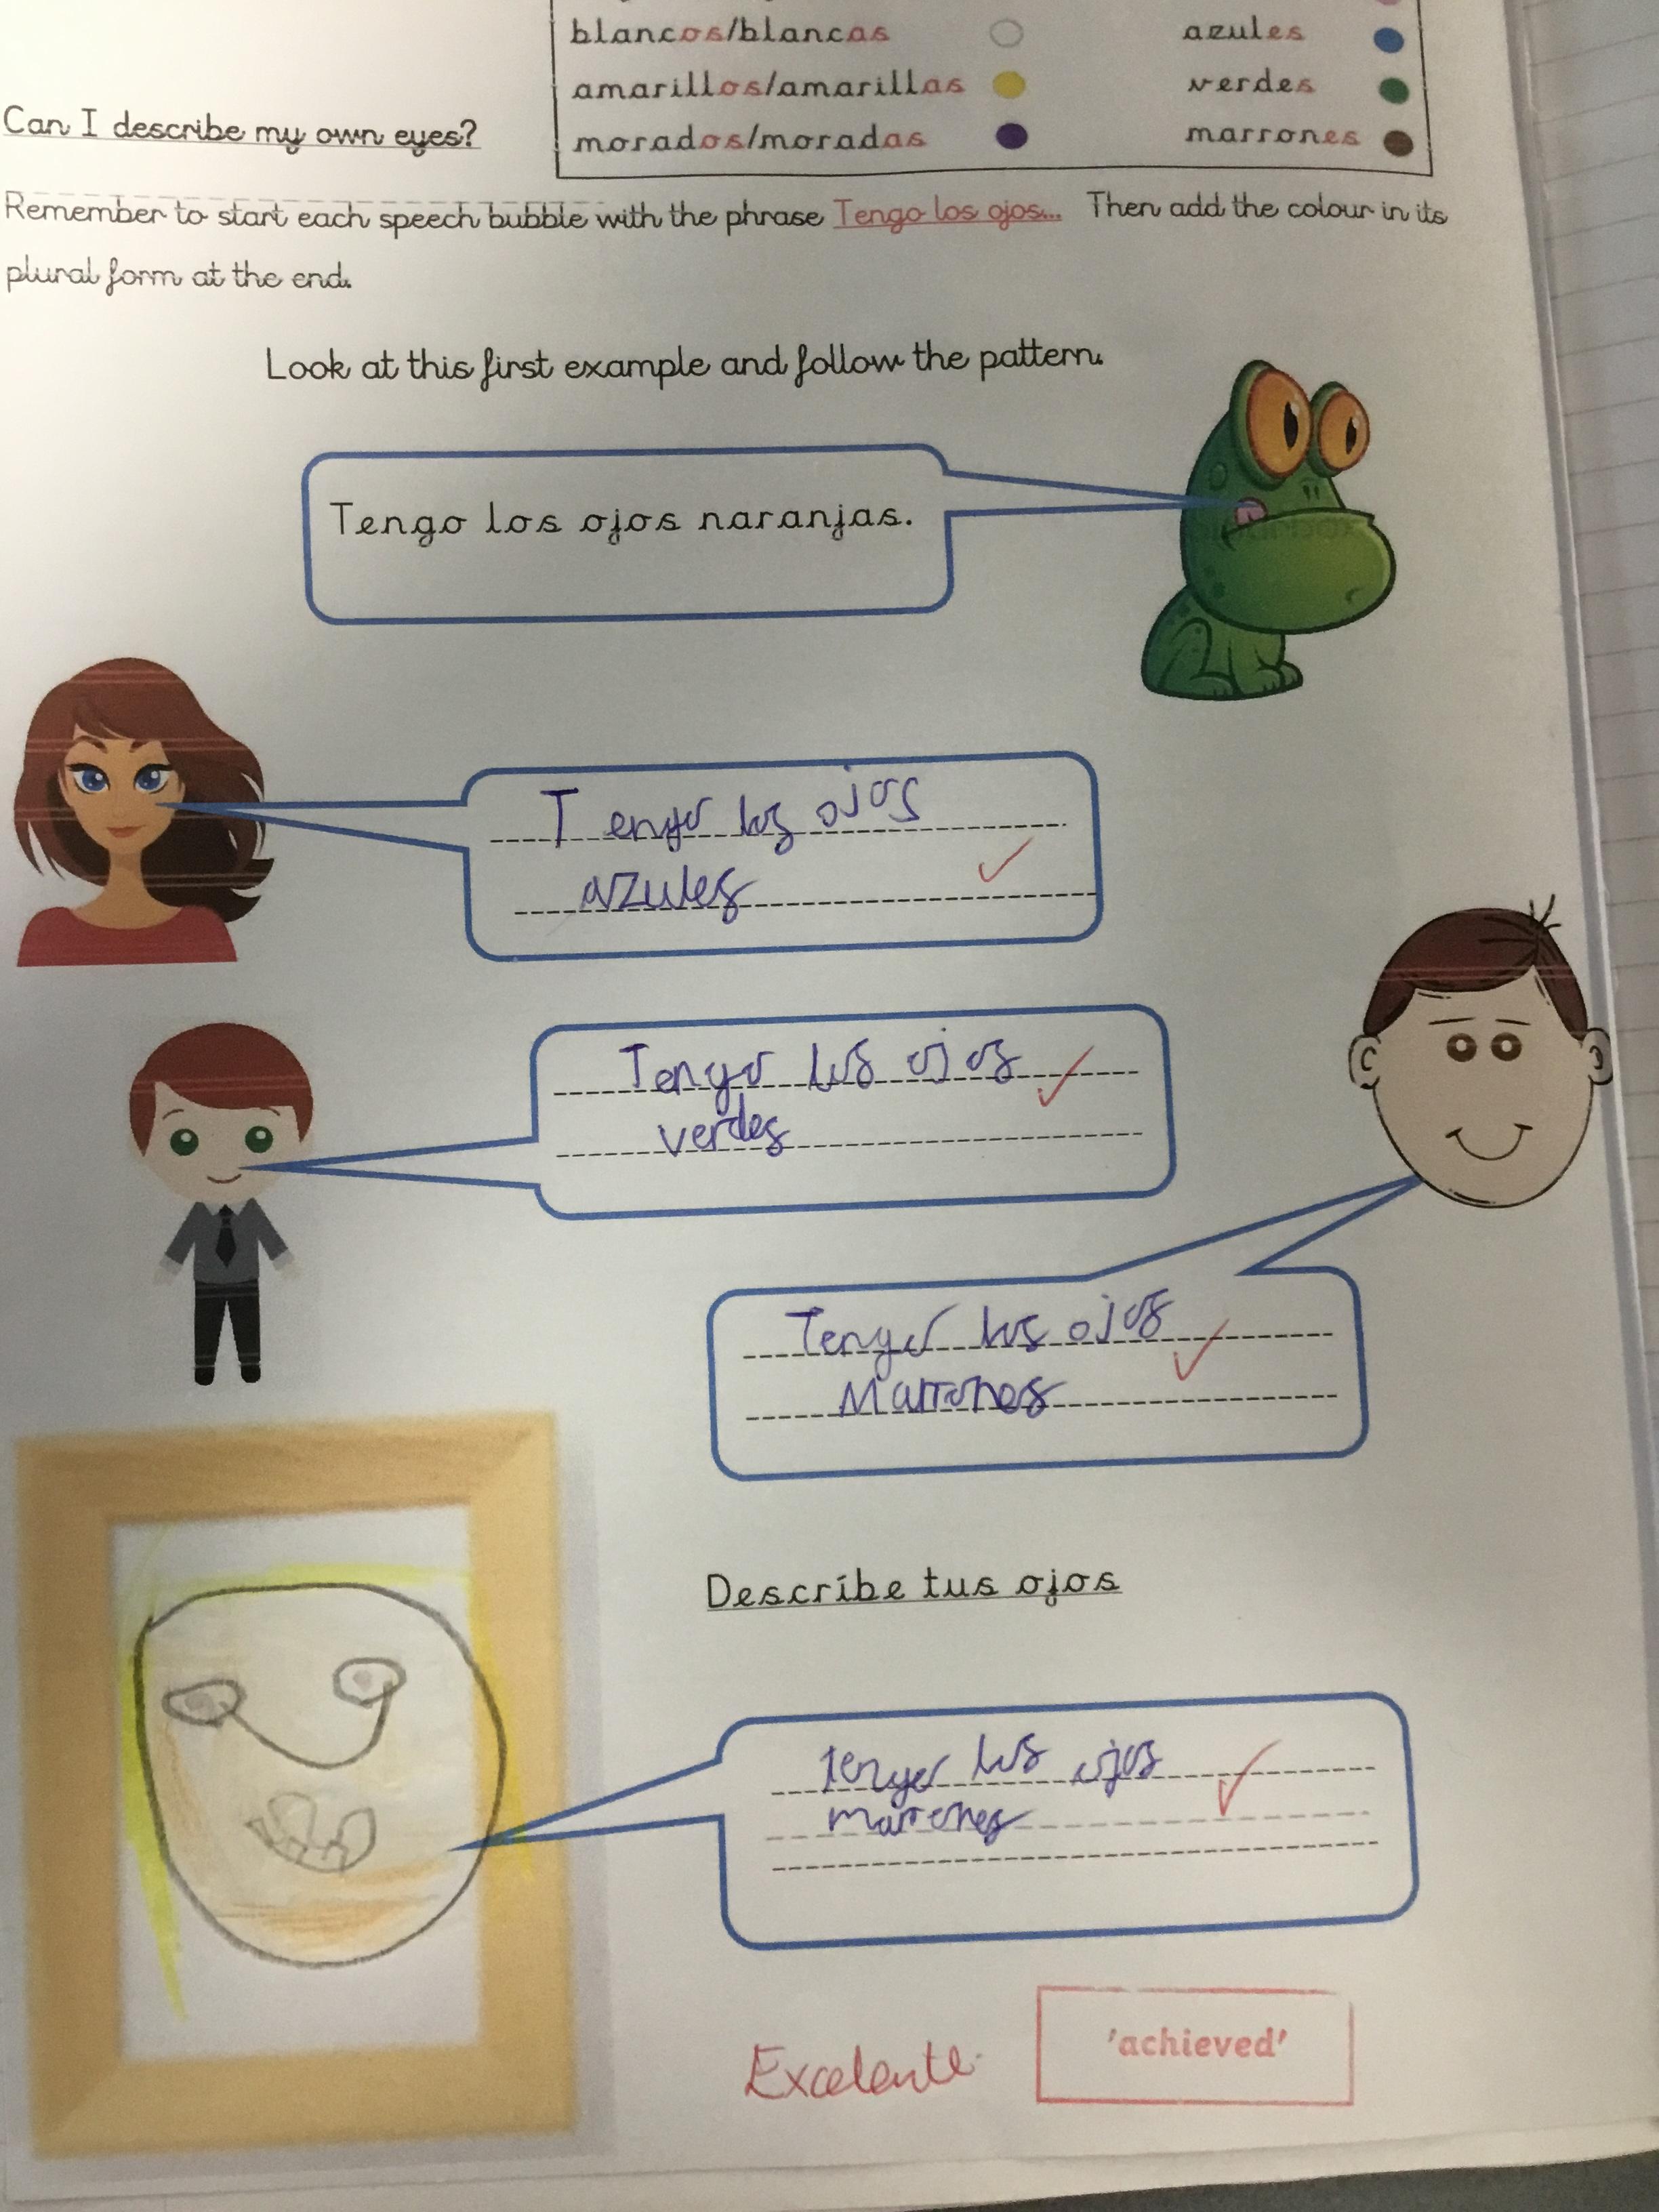 blancos/blancas azules
amarillos/amarillas verdes
morados/moradas marrones
Can I describe my own eyes?
Remember to start each speech bubble with the phrase Tengo los ojos... Then add the colour in its
plural form at the end.
Look at this first example and follow the pattern.
Tengo los ojos naranjas.
Tengo los ojos
azules
Tengo los ojos
verdes
Tengo los ojos
Marrones
Describe tus ojos
tengo los ojos
marrones
Excelente.
'achieved'